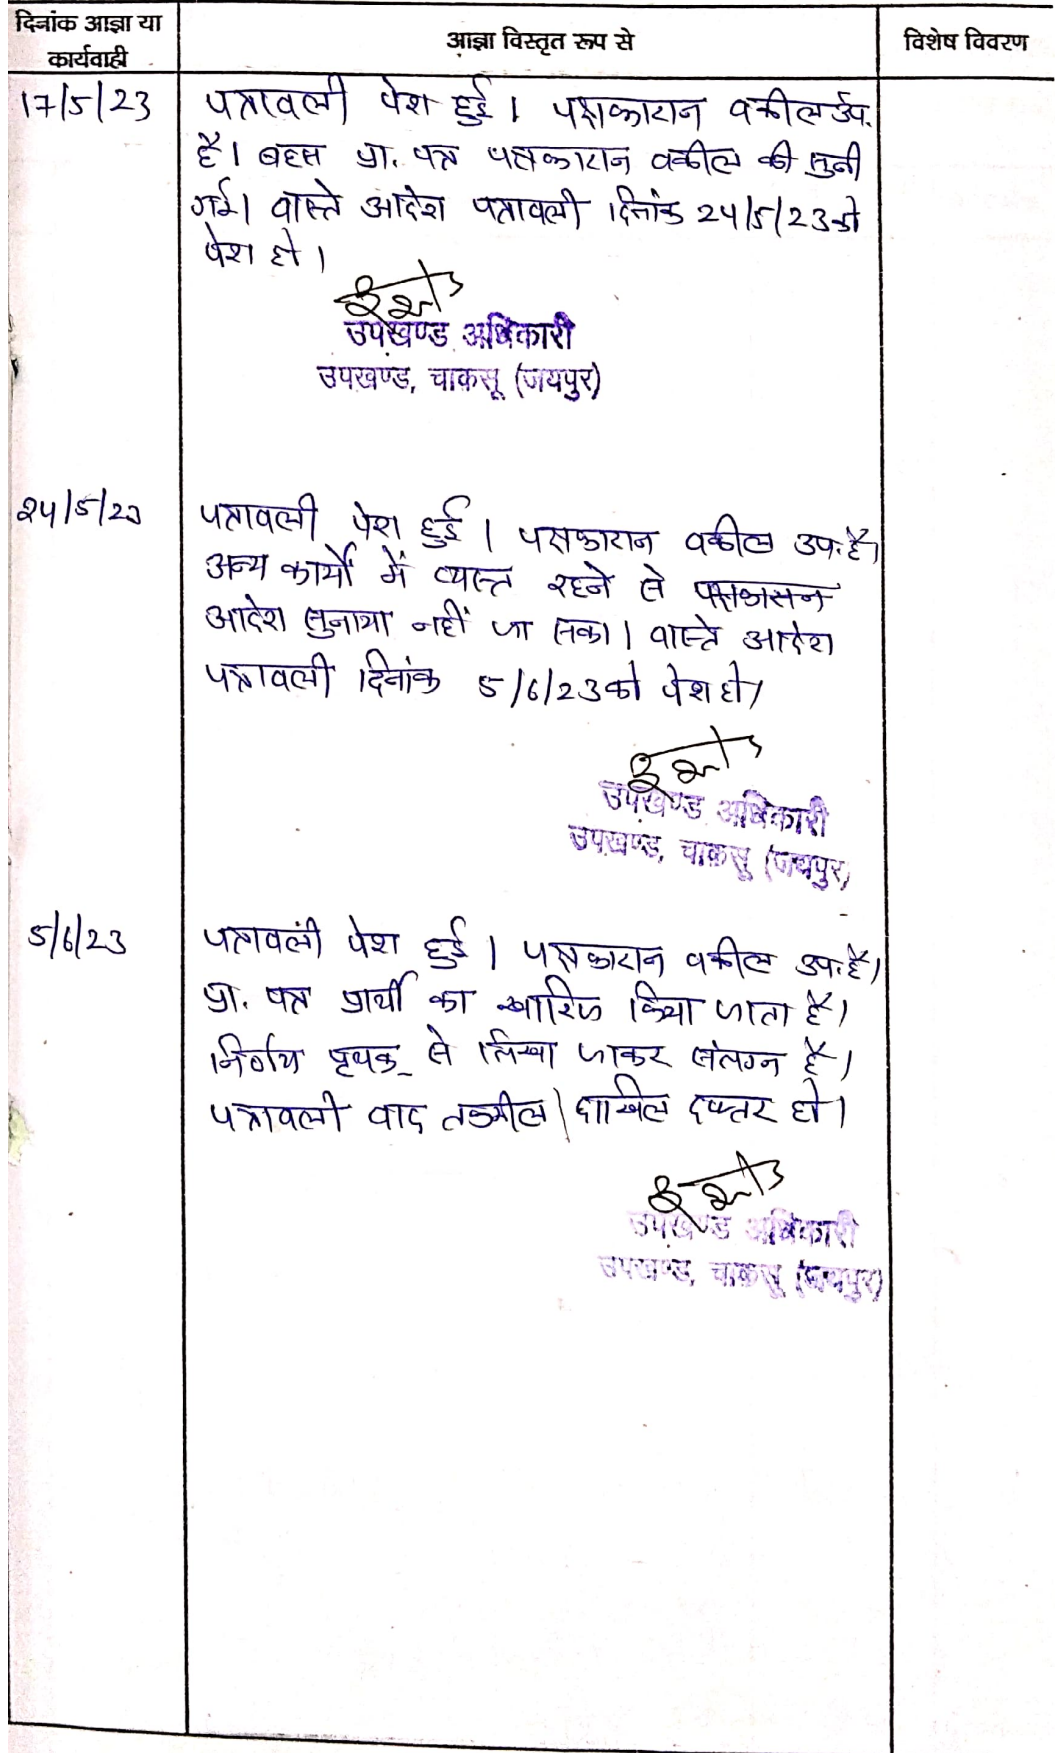 दिनांक आज्ञा या
कार्यवाही
आज्ञा विस्तृत रूप से
विशेष विवरण
17/5/23
पत्रावली पेश हुई। पक्षकारान वकील उप.
है। बहस प्रा. पत्र पक्षकारान वकील की सुनी
गई। वास्ते आदेश पत्रावली दिनांक 24/5/23 को
पेश हो।
उपखण्ड अधिकारी
उपखण्ड, चाकसू (जयपुर)
24/5/23
पत्रावली पेश हुई। पक्षकारान वकील उप. है।
अन्य कार्यों में व्यस्त रहने से
आदेश सुनाया नहीं जा सका। वास्ते आदेश
पत्रावली दिनांक 5/6/23 को पेश हो।
उपखण्ड अधिकारी
उपखण्ड, चाकसू (जयपुर)
5/6/23
पत्रावली पेश हुई। पक्षकारान वकील उप. है।
प्रा. पत्र प्रार्थी का खारिज किया जाता है।
निर्णय पृथक् से लिखा जाकर संलग्न है।
पत्रावली बाद तकमील दाखिल दफ्तर हो।
उपखण्ड अधिकारी
उपखण्ड, चाकसू (जयपुर)